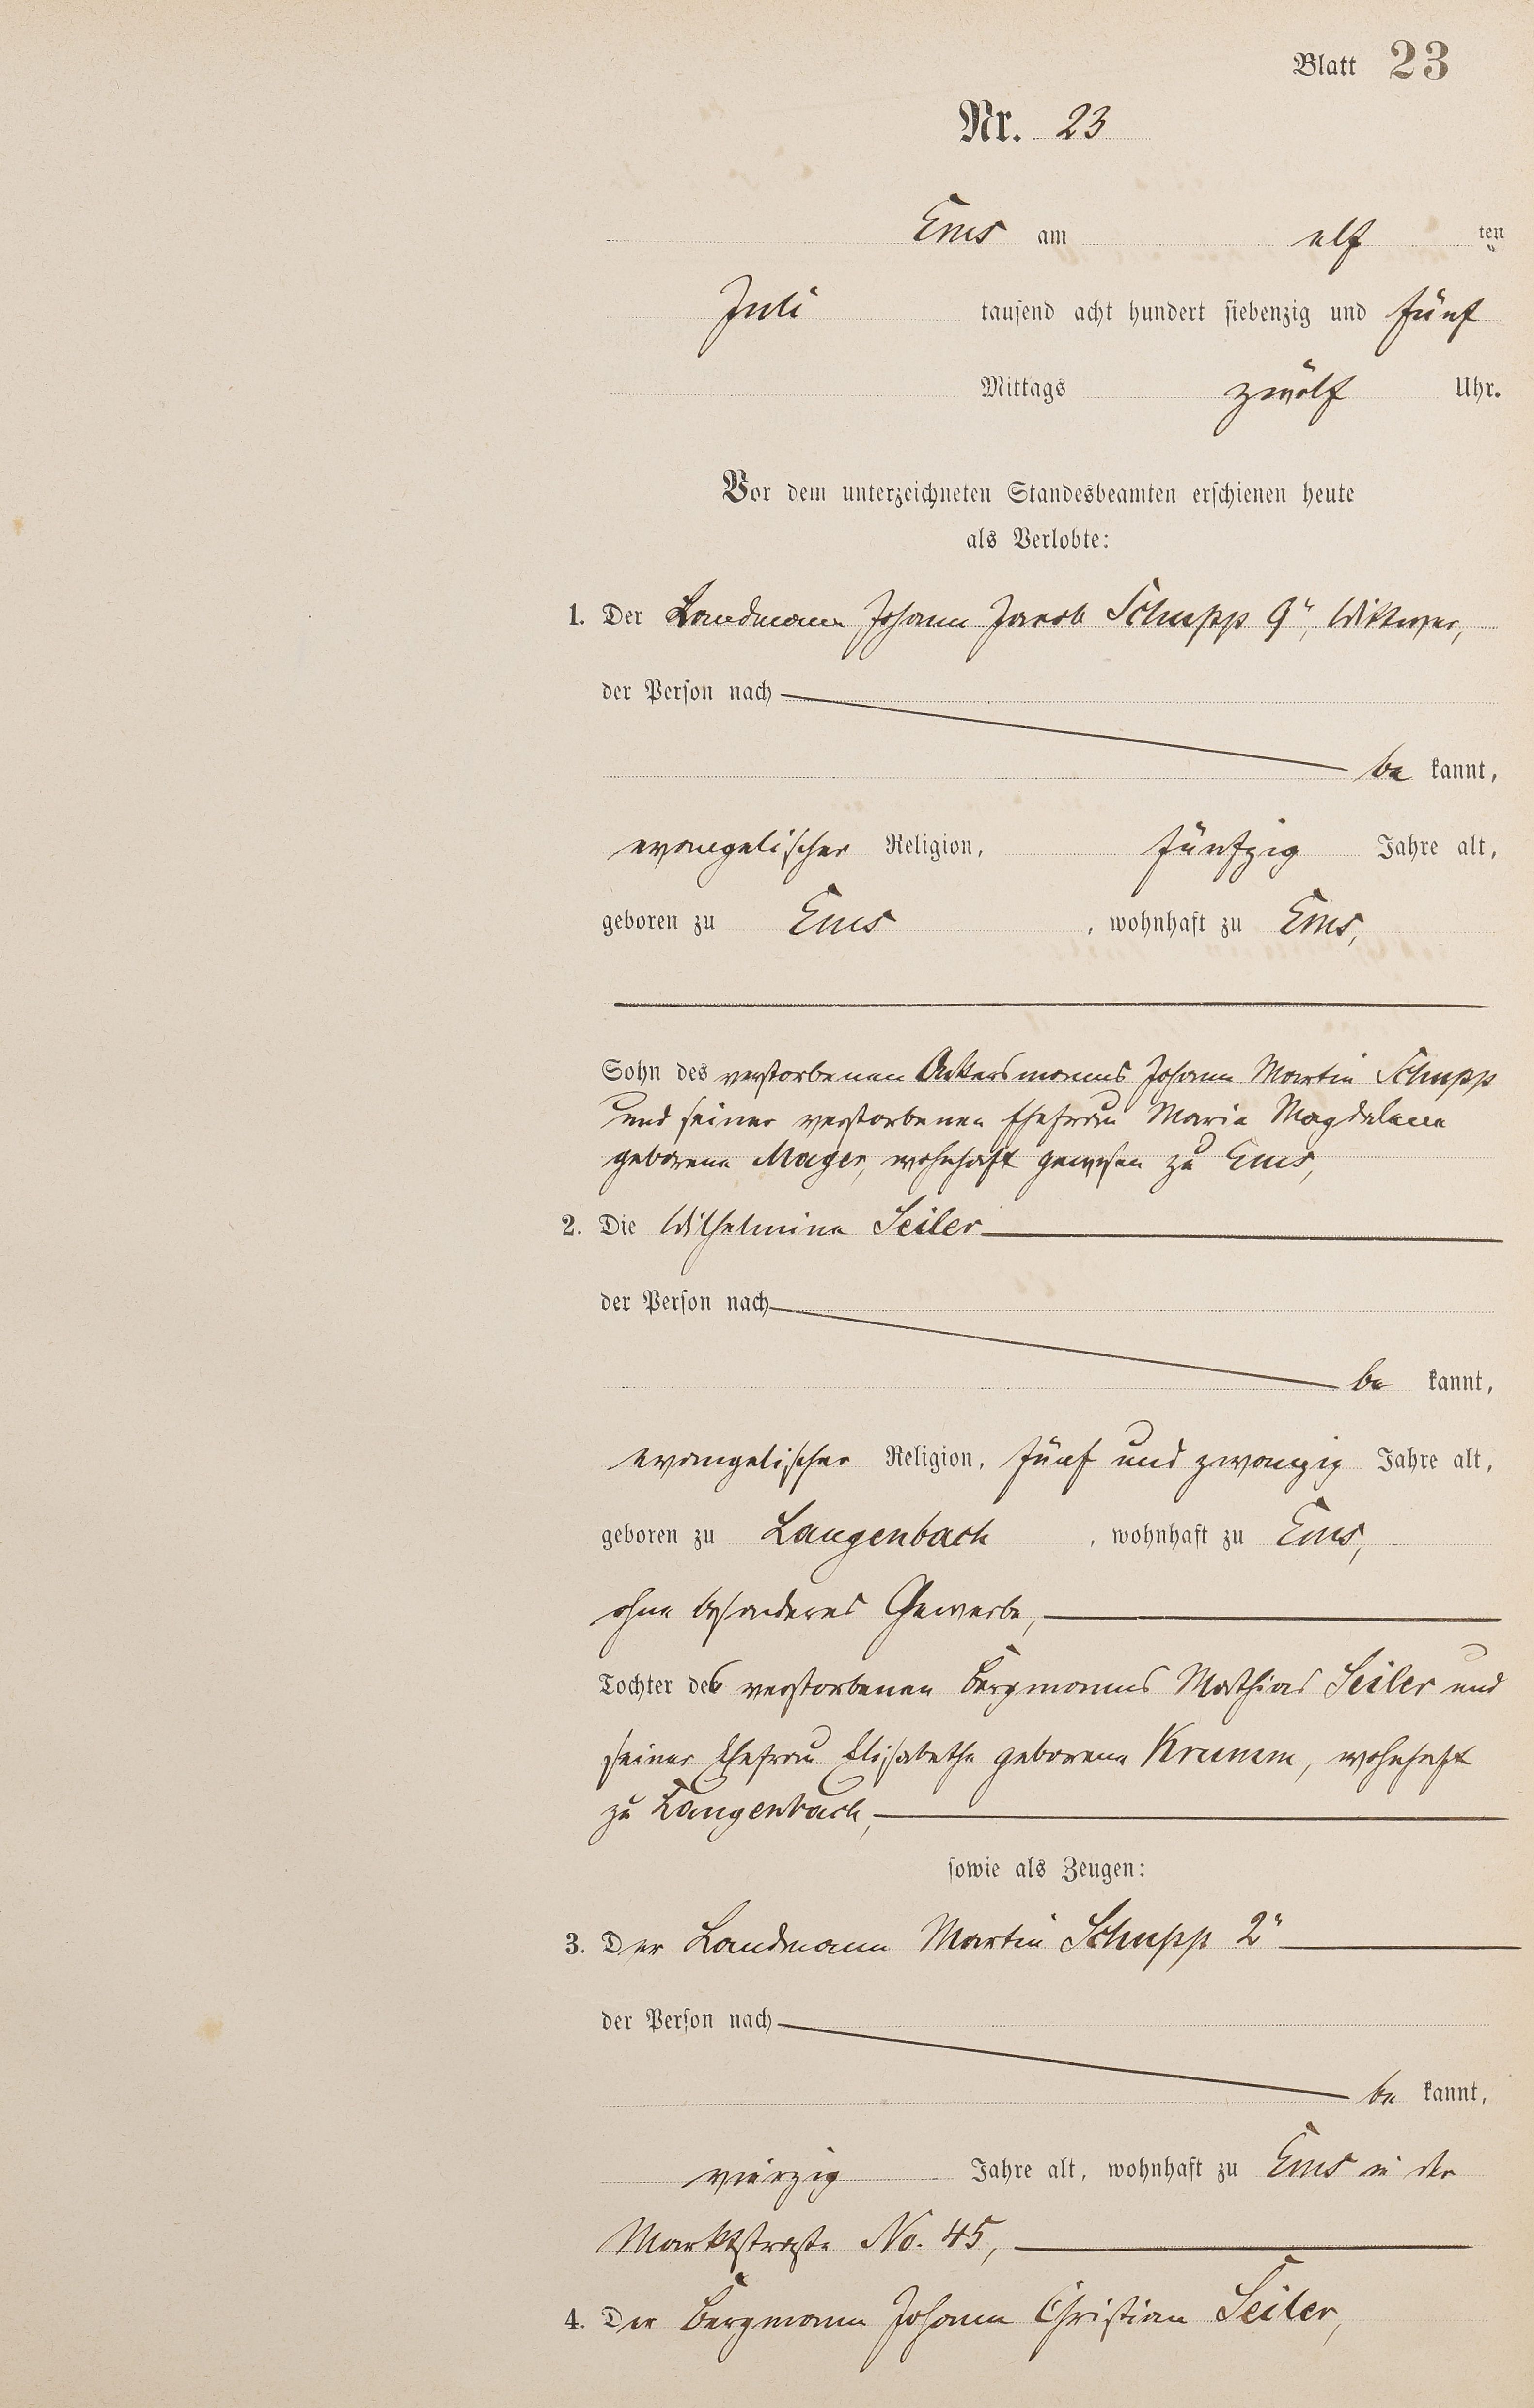 Blatt 23
Nr. 23
Ems am elf ten
Juli tausend acht hundert siebenzig und fünf
Mittags zwölf Uhr.
Vor dem unterzeichneten Standesbeamten erschienen heute
als Verlobte:
1. Der Landmann Johann Jacob Schupp 9r, Wittwer,
der Person nach
be kannt,
evangelischer Religion, fünfzig Jahre alt,
geboren zu Ems, wohnhaft zu Ems,
Sohn des verstorbenen Ackersmanns Johann Martin Schupp
und seiner verstorbenen Ehefrau Maria Magdalena
geborene Mager, wohnhaft gewesen zu Ems,
2. Die Wilhelmine Seiler
der Person nach
be kannt,
evangelischer Religion, fünf und zwanzig Jahre alt,
geboren zu Langenbach, wohnhaft zu Ems,
ohne besonderes Gewerbe,
Tochter des verstorbenen Bergmanns Mathias Seiler und
seiner Ehefrau Elisabethe geborene Krumm, wohnhaft
zu Langenbach,
sowie als Zeugen:
3. Der Landmann Martin Schupp 2r
der Person nach
be kannt,
vierzig Jahre alt, wohnhaft zu Ems in der
Marktstraße No. 45,
4. Der Bergmann Johann Christian Seiler,